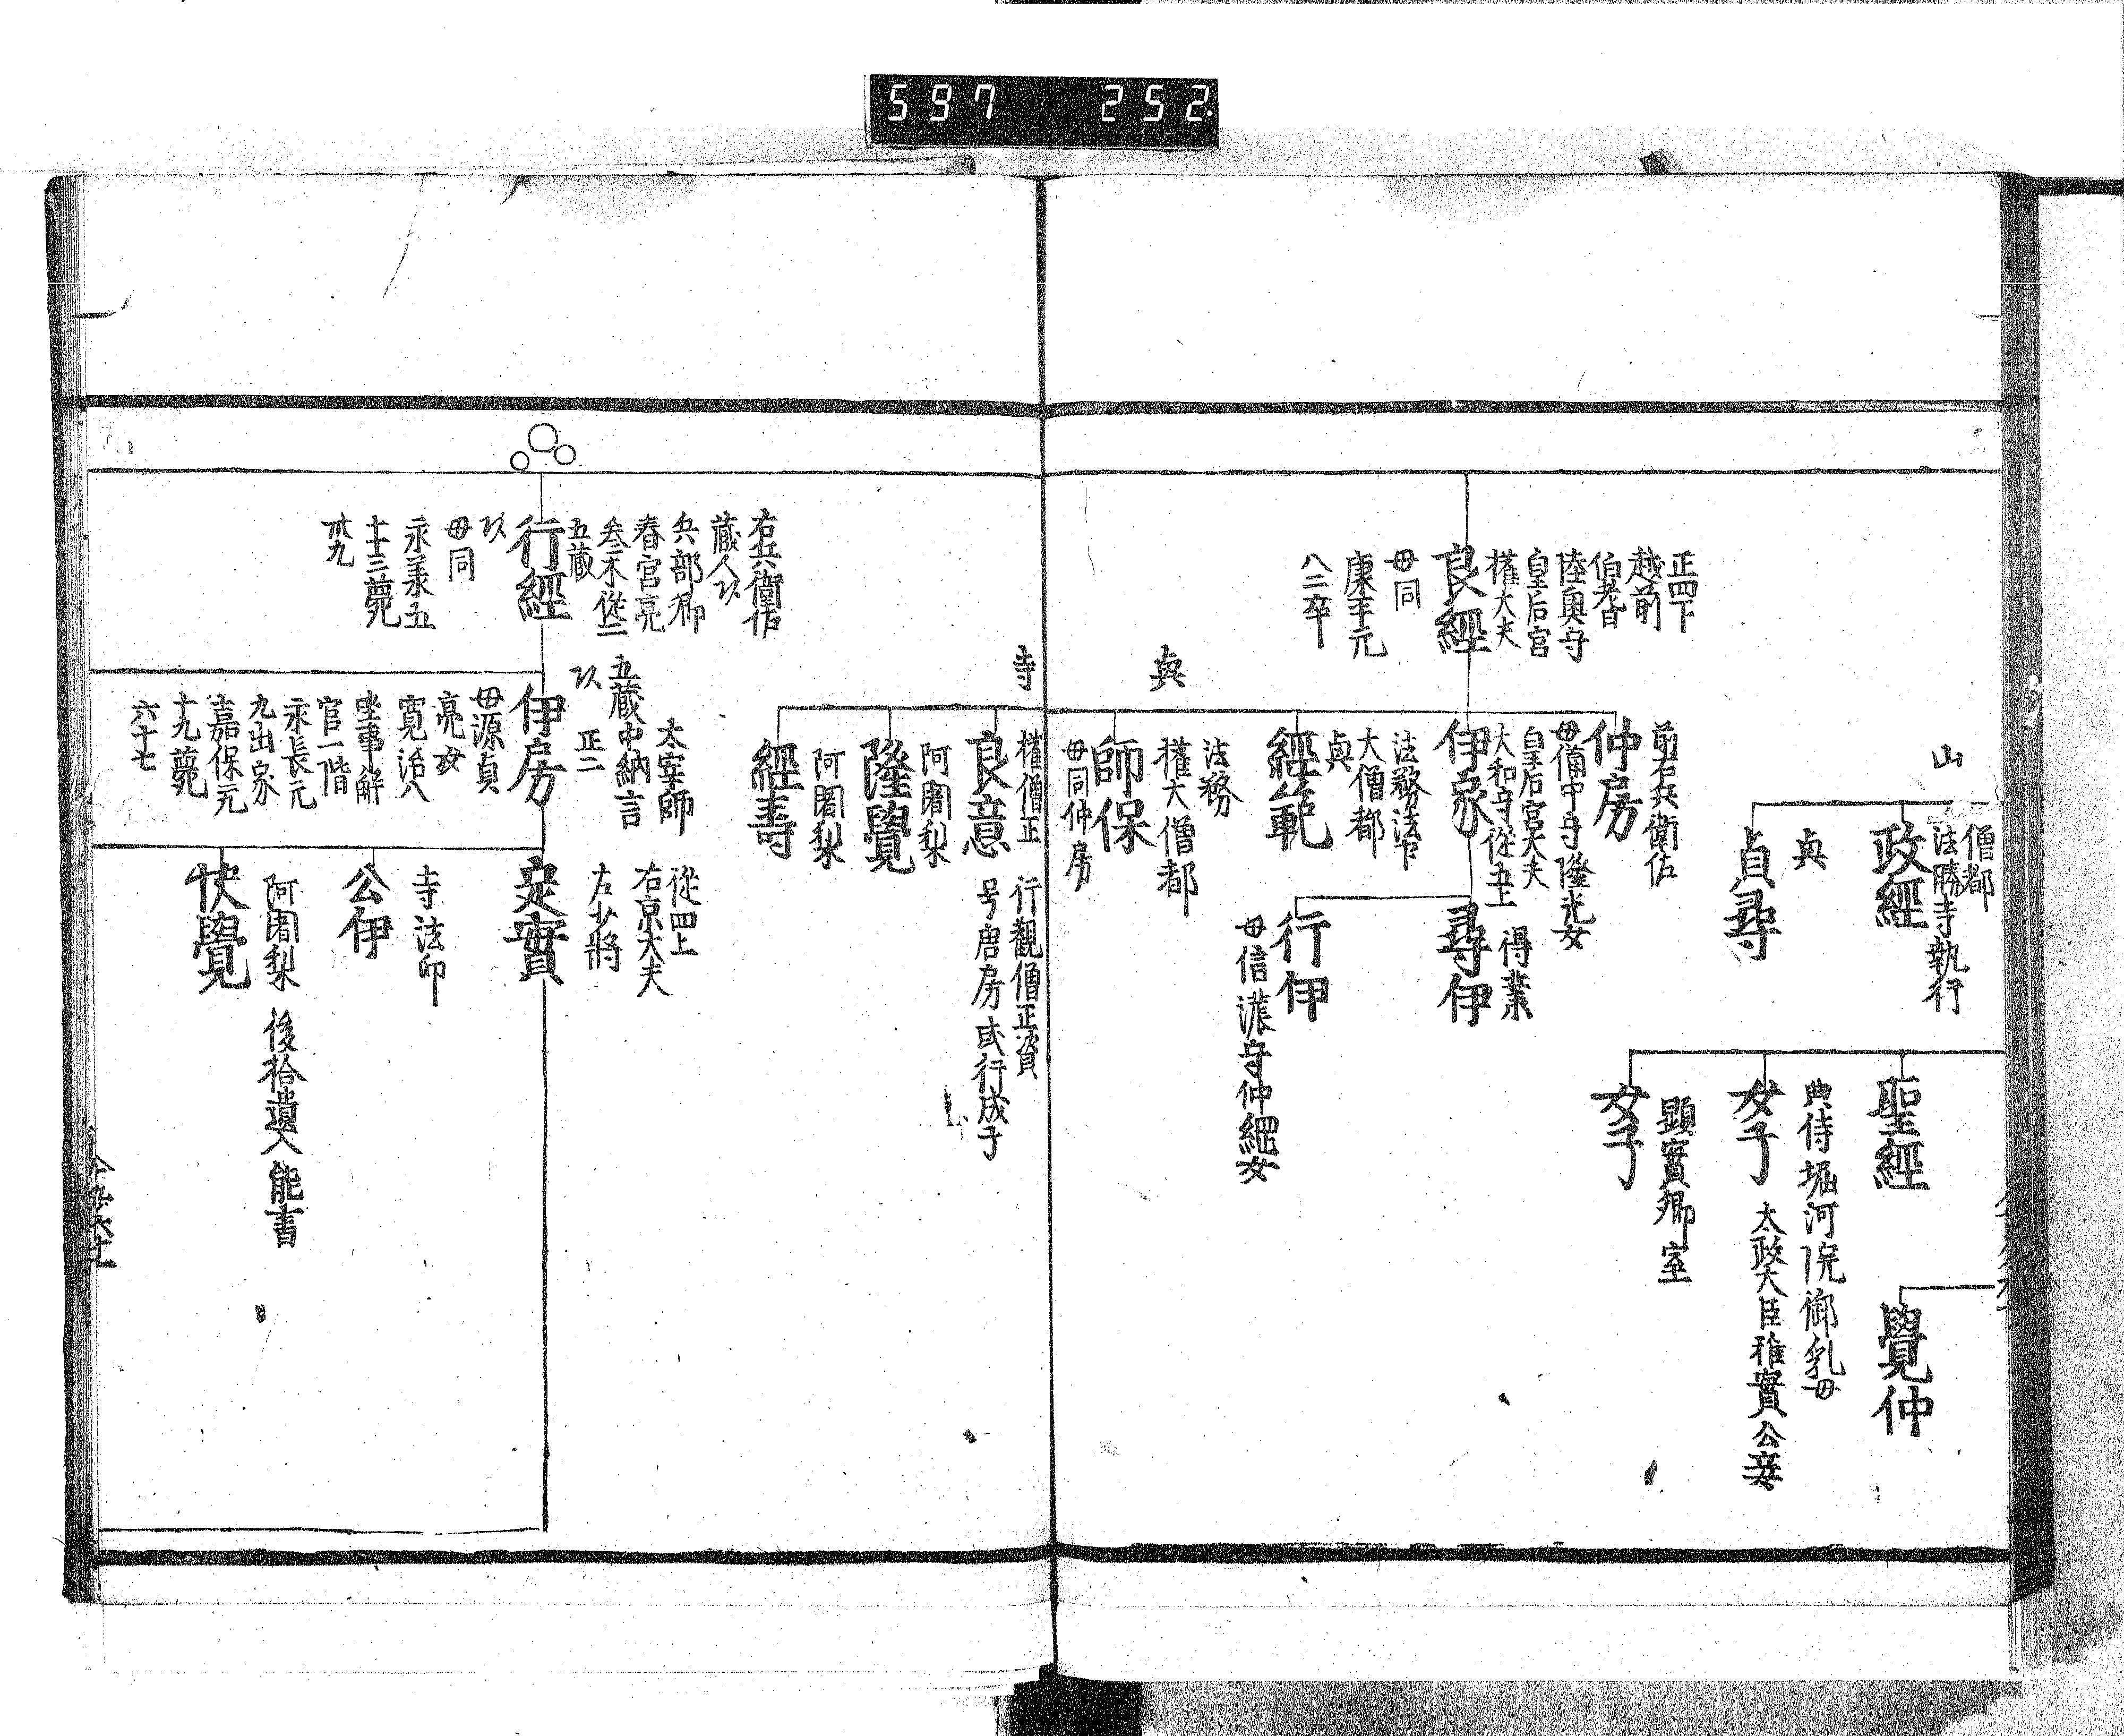 597 252.
山
僧都
法勝寺執行
政經
與
貞尋
聖經
典侍堀河院御乳母
太政大臣雅實公妾
女子
顕實卿室
女子
覺仲
正四下
越前
伯耆
陸奥守
皇后宮
権大夫
良經
母同
康平元
八二卒
前右兵衛佐
仲房
母備中守隆光女
皇后宮大夫
大和守従五上
伊家
得業
尋伊
行伊
母信濃守仲經女
法務法下
大僧都
與
經範
法務
権大僧都
師保
母同仲房
與
寺
権僧正
良意
行觀僧正資
号唐房或行成子
阿闍梨
隆覺
阿闍梨
經壽
右兵衛佐
蔵人以
兵部卿
春宮亮
参木従二
五蔵
行經
以
母同
永承五
十十三薨
卅九
太宰帥
五蔵中納言
正二
以
伊房
母源貞
亮女
寛治八
坐事解
官一階
永長元
九出家
嘉保元
十九薨
六十七
従四上
右京大夫
左少将
定實
寺法印
公伊
阿闍梨 後拾遺人 能書
快覺